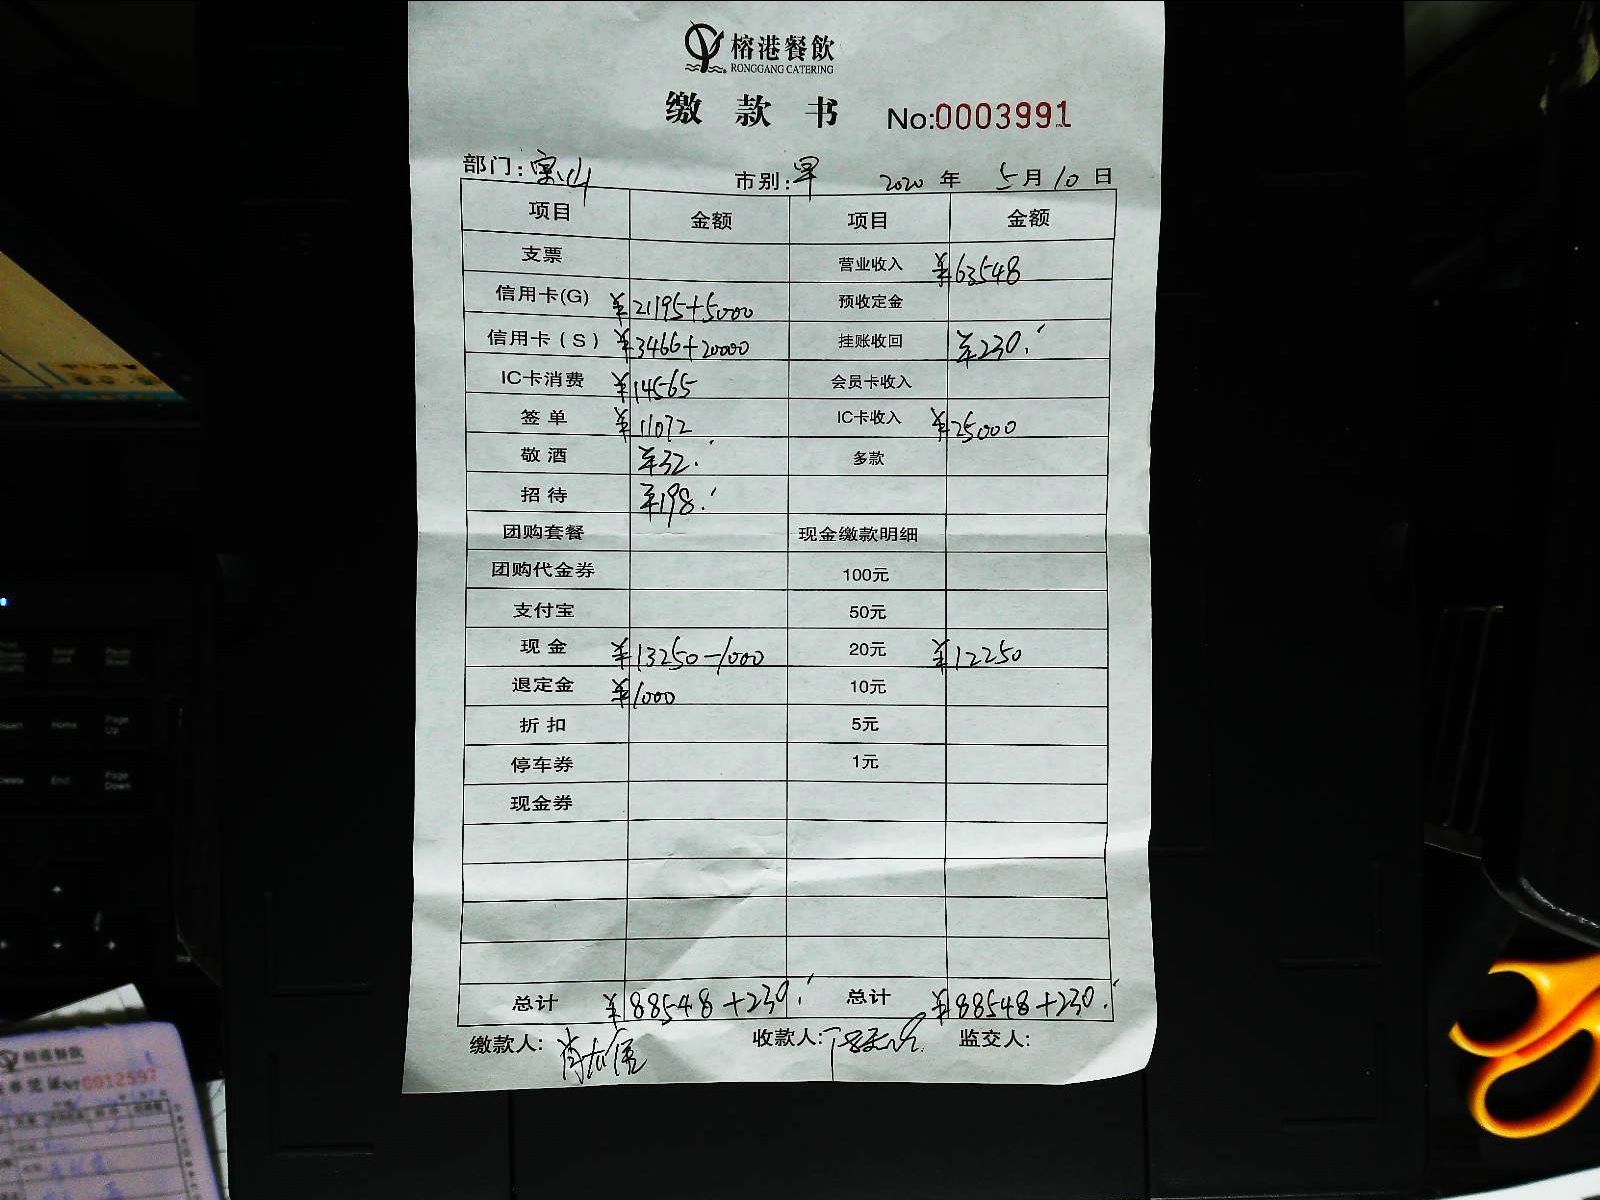 榕港餐飲
RONGGANG CATERING
缴 款 书 No:0003991
部门: 宝山 市别: 早 2020 年 5 月 10 日
项目 金额 项目 金额
支票 营业收入 ¥63548
信用卡(G) ¥21195+5000 预收定金
信用卡(S) ¥3466+20000 挂账收回 ¥230.
IC卡消费 ¥14565 会员卡收入
签单 ¥11072 IC卡收入 ¥25000
敬酒 ¥32. 多款
招待 ¥198.
团购套餐 现金缴款明细
团购代金券 100元
支付宝 50元
现金 ¥13250-1000 20元 ¥12250
退定金 ¥1000 10元
折扣 5元
停车券 1元
现金券
总计 ¥88548+230. 总计 ¥88548+230.
缴款人: 收款人: 监交人:
榕港餐飲
0012597
Home
Page Up
End
Page Down